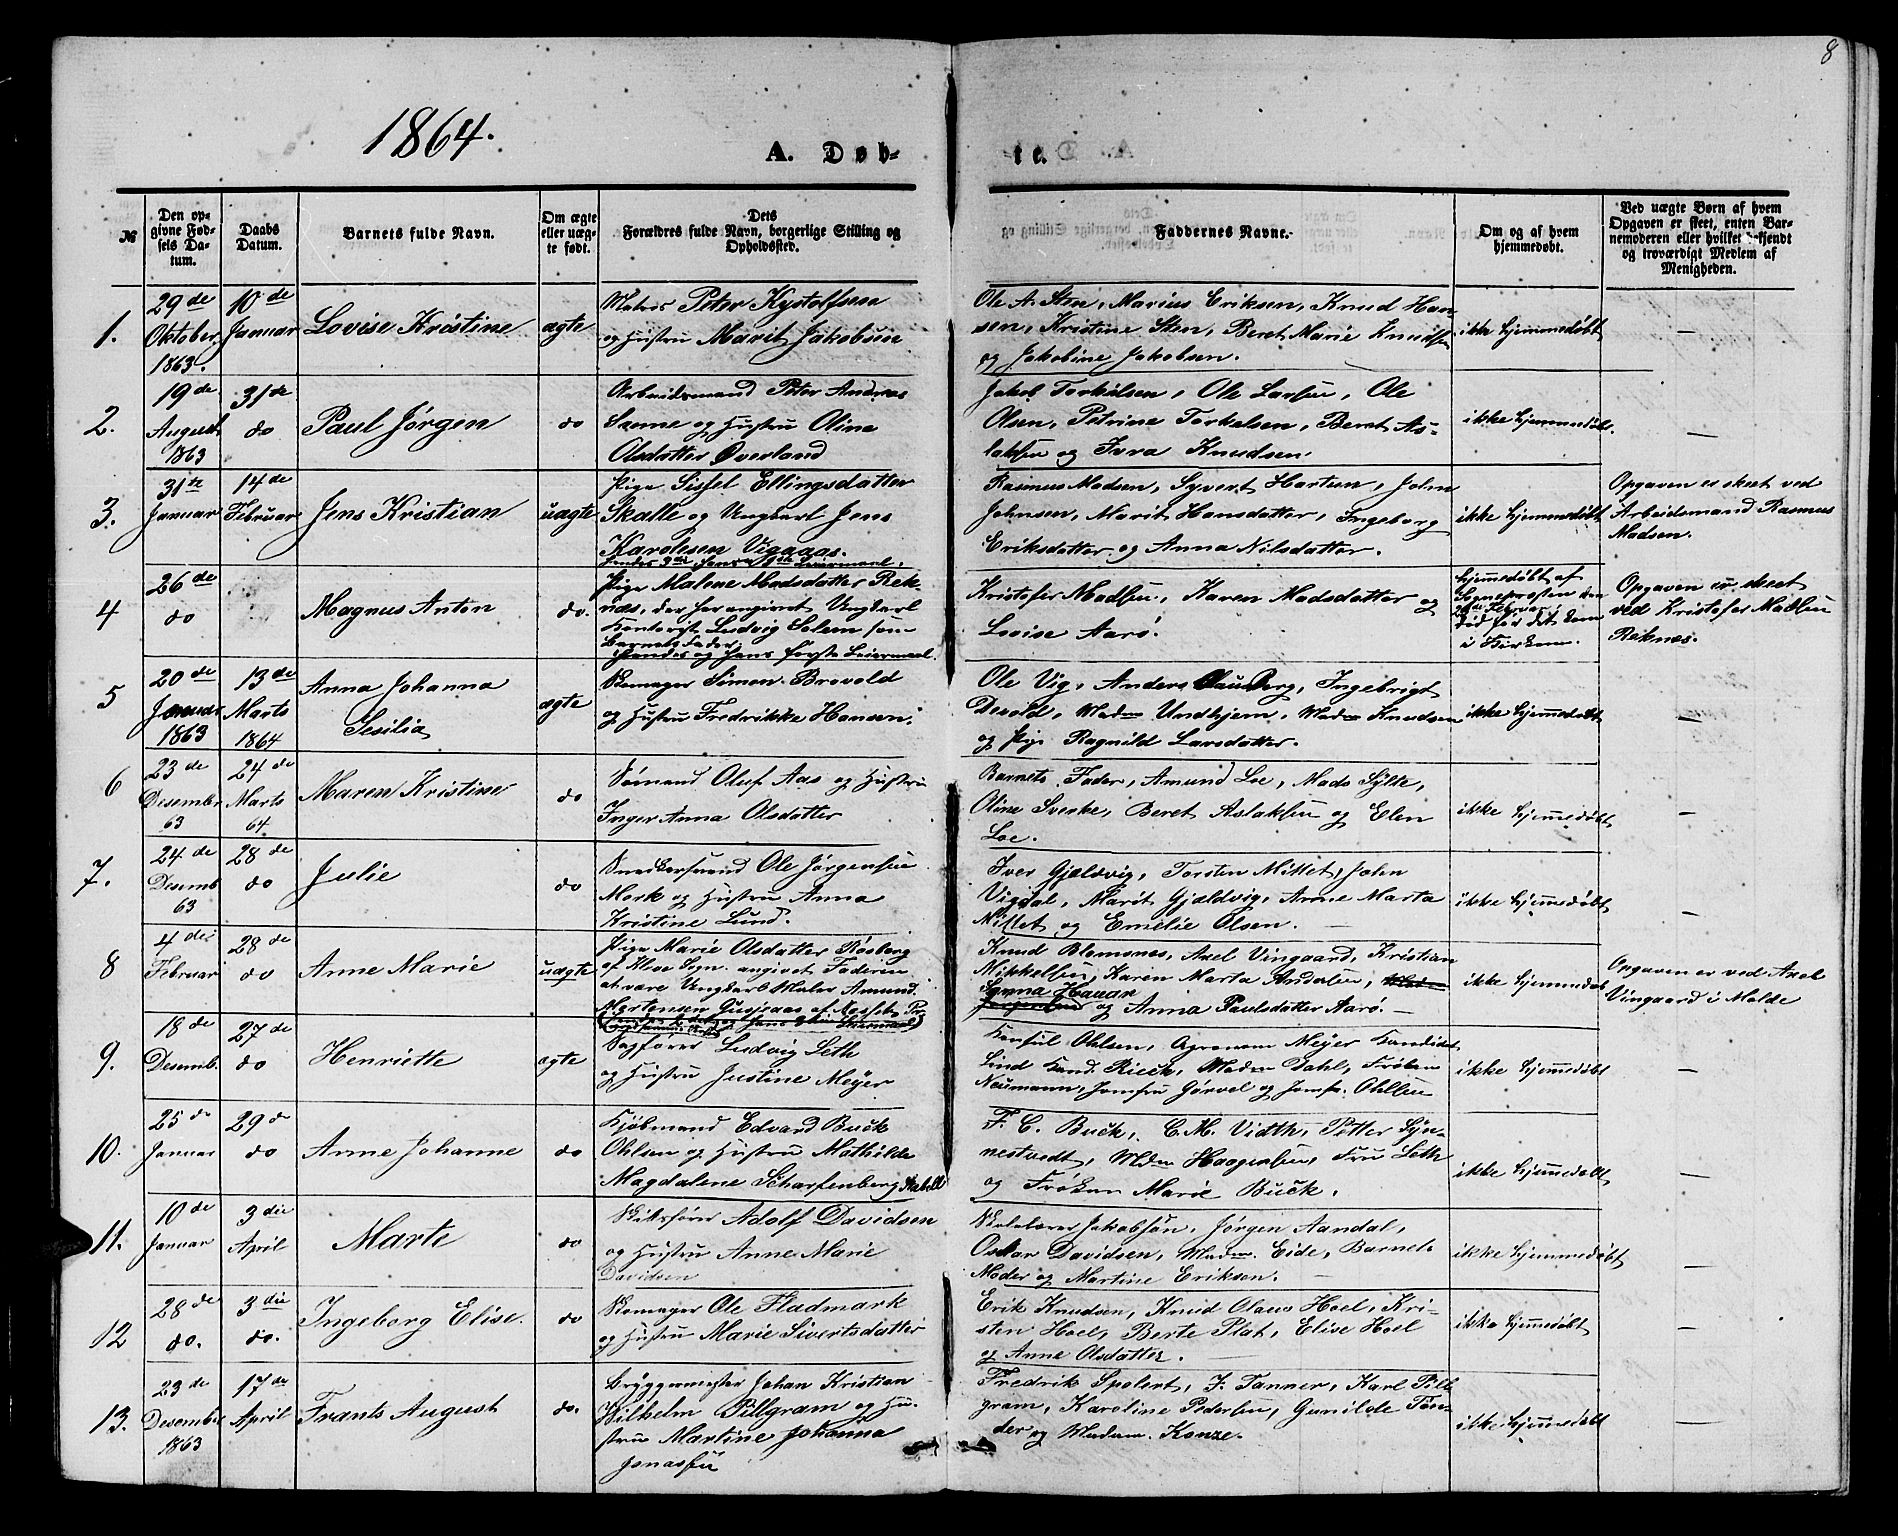 8
1864.
A. Døb-
te.
№
Den op-
givne Fød-
sels Da-
tum.
Daabs
Datum.
Barnets fulde Navn.
Om ægte
eller uæg-
te født.
Dets
Forældres fulde Navn, borgerlige Stilling og
Opholdssted.
Faddernes Navne.
Om og af hvem
hjemmedøbt.
Ved uægte Børn af hvem
Opgaven er skeet, enten Bar-
nemoderen eller hvilket bekjendt
og troværdigt Medlem af
Menigheden.
1.
29de
Oktober
1863.
10de
Januar
Lovise Kristine
ægte
Matros Peter Kystolfsen
og Hustru Marit Jakobsen
Ole A. Sten, Marius Eriksen, Knud Han-
sen, Kristine Sten, Beret Marie Knudsen
og Jakobine Jakobsen.
ikke hjemmedøbt
—
2.
19de
August
1863
31de
do
Paul Jørgen
do
Arbeidsmand Peter Andreas
Sanne og Hustru Oline
Olsdatter Øverland
Jakob Torkilsen, Ole Larsen, Ole
Olsen, Petrine Torkelsen, Beret As-
laksen og Ivra Knudsen.
ikke hjemmedøbt.
—
3.
31te
Januar
14de
Februar
Jens Kristian
uægte
Pige Sissel Ellingsdatter
Skalle og Ungkarl Jens
Karolesen Vigaaas.
Rasmus Madsen, Syvert Hartun, John
Johnsen, Marit Hansdatter, Ingeborg
Eriksdatter og Anna Nilsdatter.
ikke hjemmedøbt
Opgaven er skeet ved
Arbeidsmand Rasmus
Madsen.
4
26de
do
Magnus Anton
do.
Pige Malene Madsdatter Rek-
næs, der har angivet Ungkarl
Kontorist Ludvig Solem som
Barnets Fader.
Hendes og hans første Leiermaal.
Kristofer Madsen, Karen Madsdatter og
Lovise Aarø.
hjemmedøbt af
Sogneprosten den
Februar,
død før det kom
i Kirken.
Opgaven er skeet
ved Kristofer Madsen
Reknæs.
5
20de
Januar
1863
13de
Marts
1864
Anna Johanna
Sesilia
ægte
Skomager Simon Brovold
og Hustru Fredrikke Hansen.
Ole Vig, Anders Clausberg, Ingebrigt
Devold, Madm Undhjem, Madm Knudsen
og Pige Ragnild Larsdatter.
ikke hjemmedøbt
—
6
23de
Desember
63
24de
Marts
64
Maren Kristine
do
Sømand Oluf Aas og Hustru
Inger Anna Olsdatter
Barnets Fader, Amund Loe, Mads Sylte,
Oline Sverke, Beret Aslaksen og Elen
Loe.
ikke hjemmedøbt
—
7.
24de
Desemb
63
28de
do
Julie
do
Snedkersvend Ole Jørgensen
Mork og Hustru Anna
Kristine Lund.
Iver Gjeldvig, Torsten Mittet, John
Vigdal, Marit Gjældvig, Anne Marta
Mittet og Emelie Olsen. —
ikke hjemmedøbt
—
8
4de
Februar
28de
do
Anne Marie
uægte
Pige Marie Olsdatter Røsberg
af Kleve Sogn. angivet Faderen
at være Ungkarl Maler Amund
Mortensen Gusjeaas af Nesset Pr.
Knud Blomsnes, Axel Vingaard, Kristian
Mikkelsen, Karen Marta Andersen,
Synna Hauan
og Anna Paulsdatter Aarø. —
ikke hjemmedøbt
Opgaven er ved Axel
Vingaard i Molde
9.
18de
Desemb.
27de
do
Henriette
ægte
Sagfører Ludvig Seth
og Hustru Justine Meyer
Konsul Ohlsen, Agronom Meyer Kandidat
Lind Kand. Rieck, Madm Dahl, Frøken
Neumann, Jomfru Gørvel og Jomfr. Ohlsen
ikke hjemmedøbt
—
10.
25de
Januar
29de
do
Anne Johanne
do
Kjøbmand Edvard Buck
Ohlsen og Hustru Mathilde
Magdalene Scharfenberg Kabell
F. C. Buck, C. M. Vidth, Petter Syn-
nestvedt, Mdm Haagensen, Fru Leth
og Frøken Marie Buck.
ikke hjemmedøbt
—
11.
10de
Januar
3die
April
Marte
do
Skibsfører Adolf Davidsen
og Hustru Anne Marie
Davidsen
Skolelærer Jakobsøn, Jørgen Aandal,
Oskar Davidsen, Madm. Eide, Barnets
Moder og Martine Eriksen. —
ikke hjemmedøbt
—
12
28de
do.
3die
do.
Ingeborg Elise.
do
Skomager Ole Fladmark
og Hustru Marie Sivertsdatter
Erik Knudsen, Knud Olaus Hoel, Kri-
sten Hoel, Berte Plat, Elise Hoel
og Anne Olsdatter. —
ikke hjemmedøbt
—
13.
23de
Desember
1863
17de
April
Frants August
do.
Bryggermester Johan Kristian
Wilhelm Pillgram og Hu-
stru Martine Johanna
Jonassen
Fredrik Spolert, J. Tanner, Karl Pill
gram, Karoline Pedersen, Gunilde Tøn-
der og Madam. Konze.
ikke hjemmedøbt
—